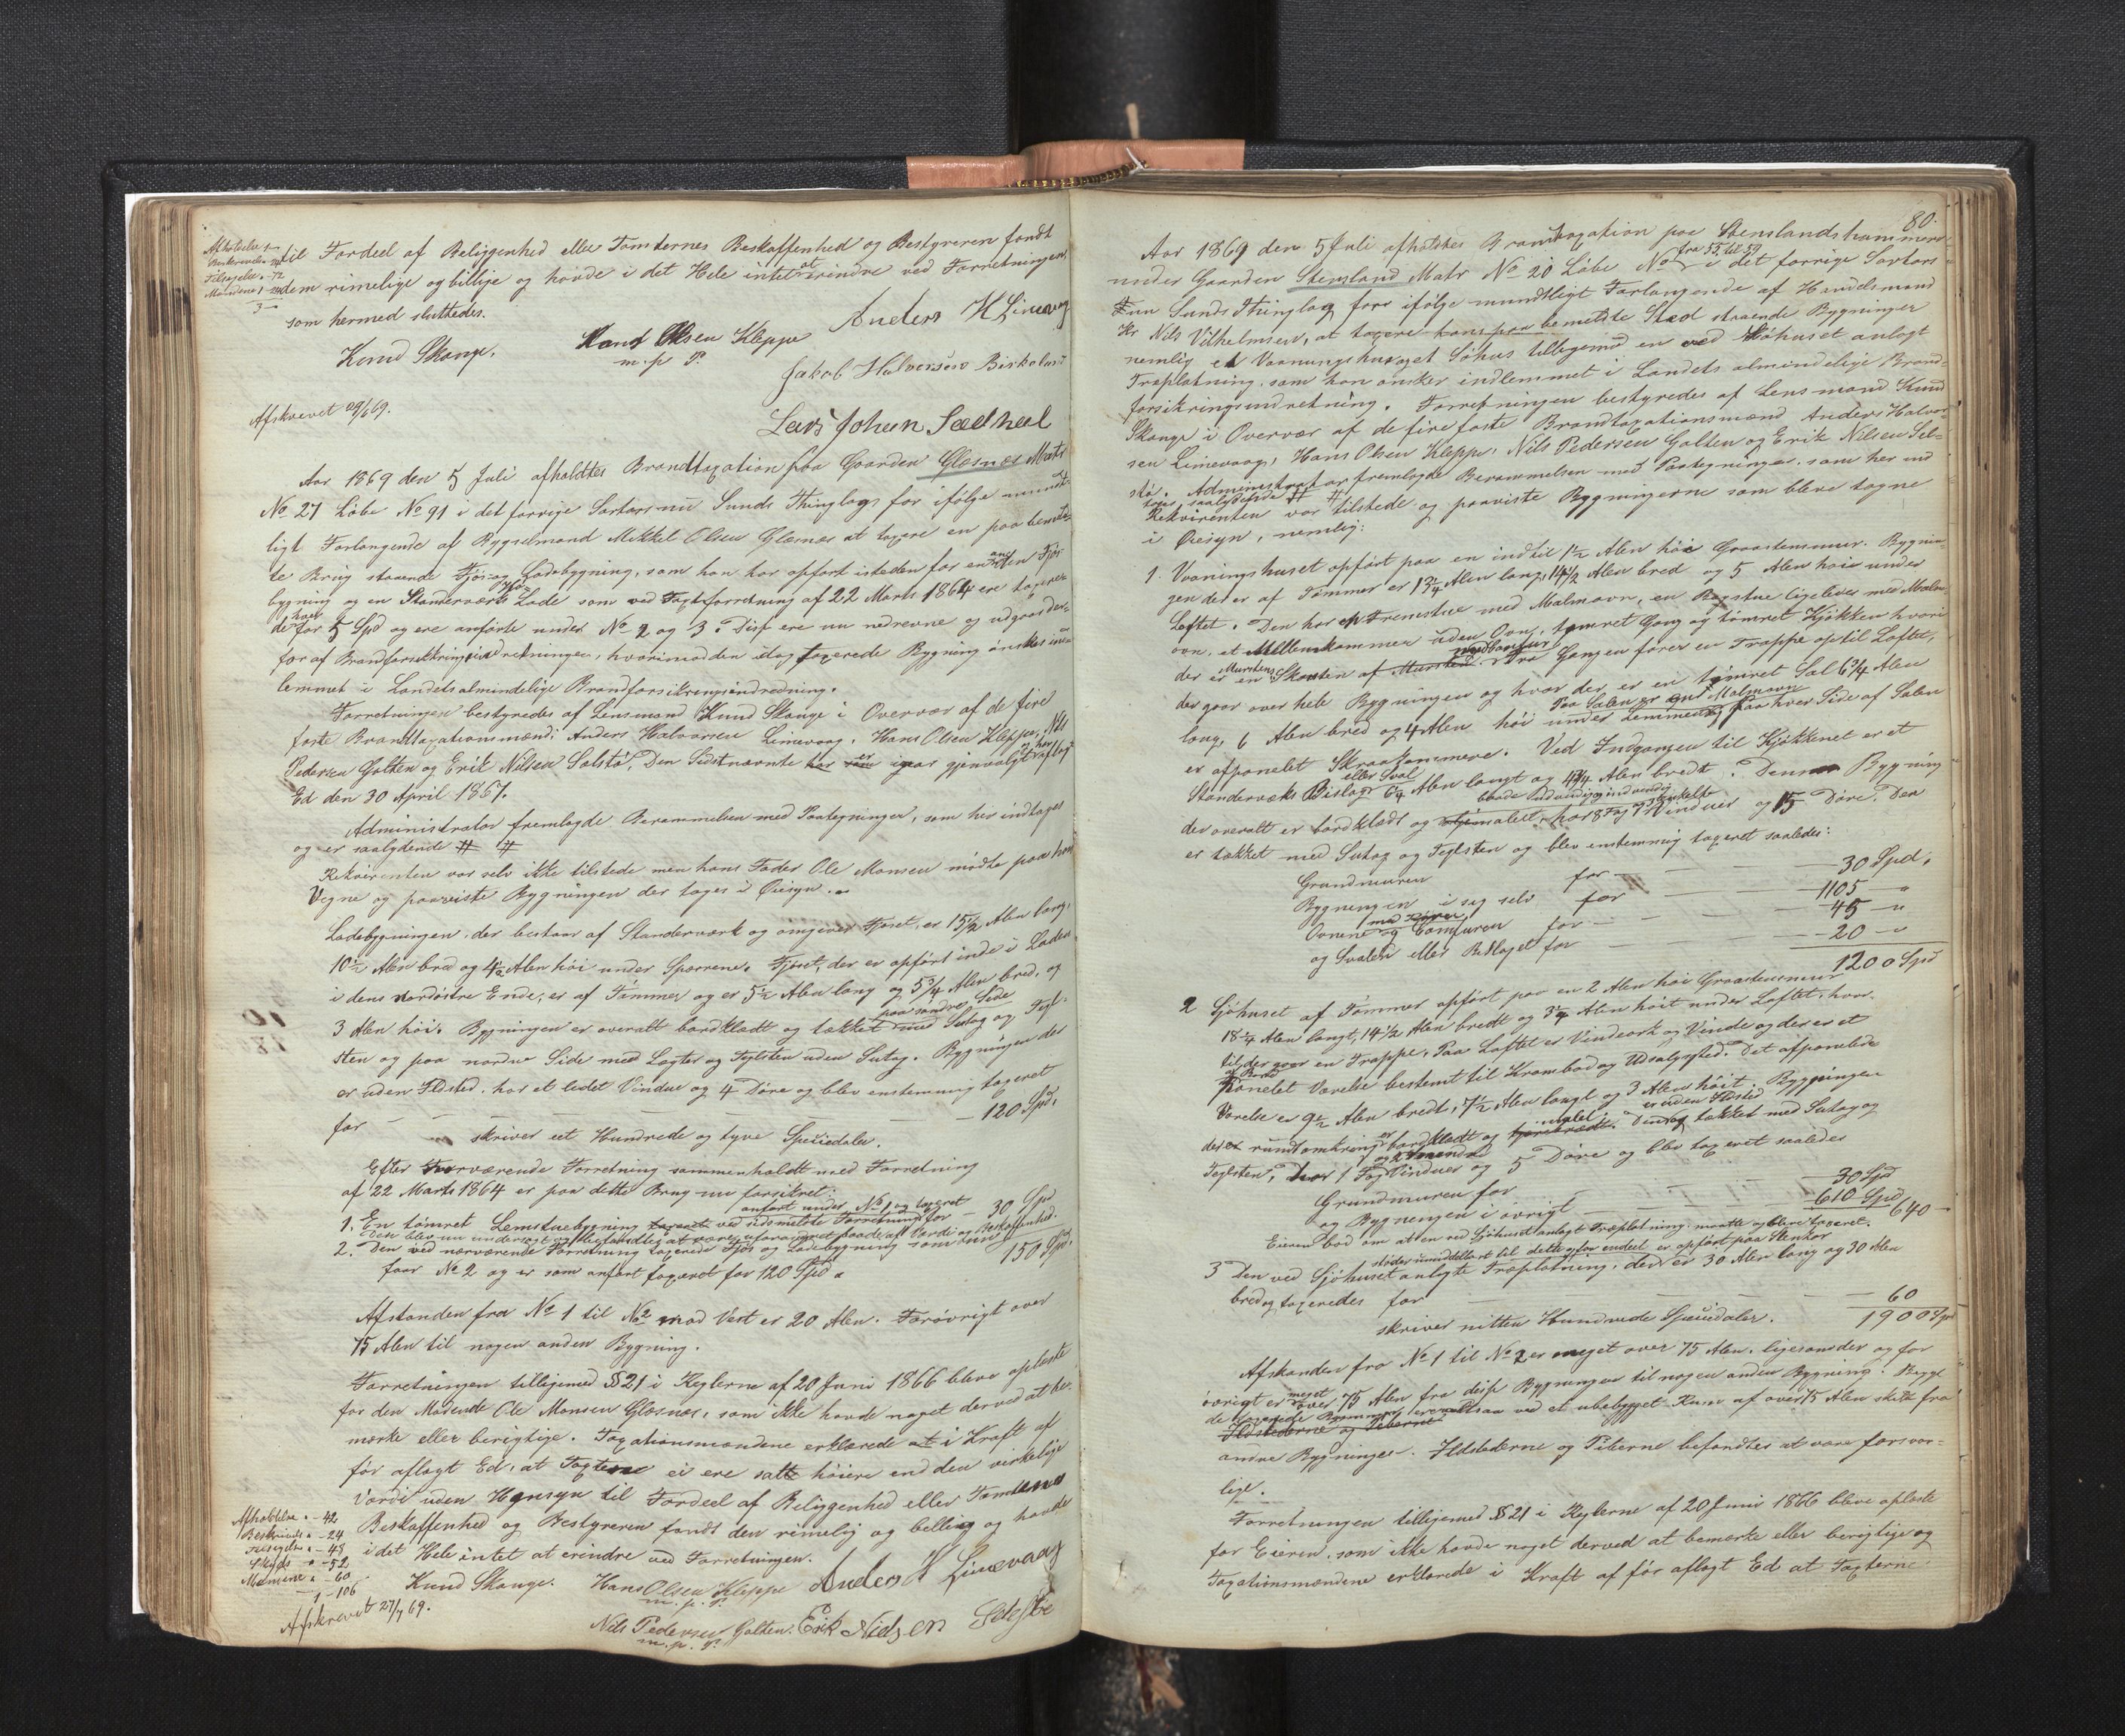 til Fordeel af Beliggenhed eller Tomternes Beskaffenhed og Bestyreren fandt
dem rimelige og billige og havde i det Hele intet at erindre ved Forretningen,
som hermed sluttedes.
Knud Skange. Hans Olsen Kleppe Anders H Limevaag
m. p. P. Jakob Halvorsen Birkeland
Afskrevet 29/6 69.
Lars Johan Sædheel
Aar 1869 den 5 Juli afholdtes Brandtaxation paa Gaarden Glæsnæs Matr
No 27 Löbe No 91 i det forrige Sartors nu Sunds Thinglag for ifølge mundt-
ligt Forlangende af Bygselmand Mikkel Olsen Glæsnæs at taxere en paa bemeld-
te Brug staaende Fjös og Ladebygning, som han har opfört isteden for en anden Fjös
bygning og en Standerværks Lade som ved Taxtforretning af 22 Marts 1864 ere taxere-
de hver for 5 Spd og ere anförte under No 2 og 3. Disse ere nu nedrevne og udgaar der-
for af Brandforsikringsindretningen, hvorimod den idag taxerede Bygning önskes ind-
lemmet i Landets almindelige Brandforsikringsindretning.
Forretningen bestyredes af Lensmand Knud Skange i Overvær af de fire
faste Brandtaxationsmænd: Anders Halvorsen Limevaag, Hans Olsen Kleppe, Nils
Pedersen Golten og Erik Nilsen Selstö. Den Sidstnævnte er iaar gjenvalgt, han aflagt
Ed den 30 April 1867.
Administrator fremlagde Berammelsen med Paategninger, som her indtages
og er saalydende # #
Rekvirenten var selv ikke tilstede men hans Fader Ole Monsen mödte paa hans
Vegne og paaviste Bygningen der toges i Öiesyn.
Ladebygningen, der bestaar af Standerværk og omgiver Fjöset, er 15 1/2 Alen lang,
10 1/2 Alen bred og 4 1/2 Alen höi under Sparrene. Fjöset, der er opfört inde i Laden
i dens nordöstre Ende, er af Tömmer og er 5 1/2 Alen lang og 5 3/4 Alen bred, og
3 Alen höi. Bygningen er overalt bordklædt og tækket paa söndre Side med Sutag og Tegl-
sten og paa nordre Side med Lægter og Teglsten uden Sutag. Bygningen der
er uden Ildsted, har et lidet Vindue og 4 Döre og blev enstemmig taxeret
for — — — — — 120 Spd,
skriver eet Hundrede og tyve Speciedaler.
Efter Nærværende Forretning sammenholdt med Forretning
af 22 Marts 1864 er paa dette Brug nu forsikret:
1. En tömret Lemstuebygning anfört under No 1 og taxeret ved sidsmeldte Forretning for — 30 Spd
Den blev nu undersögt og befandtes at være uforandret baade af Værdi og Beskaffenhed.
2. Den ved nærværende Forretning taxerede Fjös og Ladebygning som nu
faar No 2 og er som anfört taxeret for 120 Spd. 150 Spd,
Afstanden fra No 1 til No 2 mod Vest er 20 Alen. Forövrigt over
75 Alen til nogen anden Bygning.
Forretningen tilligemed §§ 21 i Reglerne af 20 Juni 1866 bleve oplæste
for den Mödende Ole Monsen Glæsnæs, som ikke havde noget derved at be-
mærke eller berigtige. Taxationsmændene erklærede at i Kraft af
för aflagt Ed, at Taxterne ei ere satte höiere end den virkelige
Værdi uden Hensyn til Fordeel af Beliggenhed eller Tomtens
Beskaffenhed og Bestyreren fandt den rimelig og billig og havde
i det Hele intet at erindre ved Forretningen.
Afholdelse - 42
Beskrivels - 24
Tilsigelse - 48
Skyds - 52
Mændene - 60
1 - 106
Afskrevet 27/7 69.
Knud Skange. Hans Olsen Kleppe Anders H Limevaag
m. p. P.
Nils Pedersen Golten. Erik Nielsen Selstöe
m. p. P.
80.
Aar 1869 den 5 Juli afholdtes Brandtaxation paa Stenslandshammeren
under Gaarden Stensland Matr No 20 Löbe No fra 55 til 59 i det forrige Sartors
nu Sunds Thinglag for ifølge mundtligt Forlangende af Handelsmand
Hr Nils Vilhelmsen, at taxere hans paa bemeldte Sted staaende Bygninger
nemlig et Vaaningshus og et Söhus tilligemed en ved Söhuset anlagt
Træplatning, som han önsker indlemmet i Landets almindelige Brand-
forsikringsindretning. Forretningen bestyredes af Lensmand Knud
Skange i Overvær af de fire faste Brandtaxationsmænd Anders Halvor-
sen Limevaag, Hans Olsen Kleppe, Nils Pedersen Golten og Erik Nilsen Sel-
stö. Administrator fremlagde Berammelsen med Paategninger, som her ind
tages saalydende # #
Rekvirenten var tilstede og paaviste Bygningerne som bleve tagne
i Öiesyn, nemlig:
1 Vaaningshuset opfört paa en indtil 1 1/2 Alen höi Graastensmur. Bygnin-
gen der er af Tömmer er 13 3/4 Alen lang, 14 1/2 Alen bred og 5 Alen höi under
Loftet. Den har en Fremstue med Malmovn, en Bagstue ligeledes med Malm
ovn, et Mellemkammer uden Ovn, tömret Gang og tömret Kjökken hvori
der er en Murstens Skorsten med Comfur. Fra Gangen förer en Trappe op til Loftet,
der gaar over hele Bygningen og hvor der er en tömret Sal 6 3/4 Alen
lang, 6 Alen bred og 4 Alen höi under Lemmen. Paa Salen er en Malmovn og paa hver Side af Salen
er afpanelet Skraakammere. Ved Indgangen til Kjökkenet er et
Standerværks Bislag eller Sval 6 1/4 Alen langt og 4 3/4 Alen bredt. Denne Bygning
der overalt er bordklædt og malet, baade udvendig og indvendig, har 8 Fag og 7 enkelte Vinduer og 15 Döre. Den
er tækket med Sutag og Teglsten og blev enstemmig taxeret saaledes:
Grundmuren for — — 30 Spd,
Bygningen i sig selv for — — 1105 — "
Ovnene med Rörer og Comfuren for — — 45 — "
og Svalen eller Bislaget for — — 20 — "
1200 Spd
2 Sjöhuset af Tömmer opfört paa en 2 Alen höi Graastensmur
18 1/4 Alen langt, 14 1/2 Alen bredt og 3 1/4 Alen höit under Loftet, hvor-
til der gaar en Trappe. Paa Loftet er Vindeark og Vinde og der er et
panelet Værelse bestemt til Krambod og Udsalgssted. Det afpanelede
Værelse er 9 1/2 Alen bredt, 7 1/2 Alen langt og 3 Alen höit. Bygningen
der rundtomkring er bordklædt og malet, er uden Ildsted. Den er tækket med Sutag og
Teglsten, har 1 Fag Vinduer og 5 Döre og blev taxeret saaledes
Grundmuren for — — 30 Spd
og Bygningen i övrigt — — 610 Spd 640 —
Eieren bad om at en ved Sjöhuset anlagt Træplatning maatte og blive taxeret.
3 Den ved Sjöhuset anlagte Træplatning, der stöder umiddelbart til dette og for endeel er opfört paa Stenkar er 30 Alen lang og 30 Alen
bred og taxeredes for — — 60
skriver nitten Hundrede Speciedaler. 1900 Spd
Afstanden fra No 1 til No 2 er meget over 75 Alen. ligesom der og for
övrigt er meget over 75 Alen fra disse Bygninger til nogen anden Bygning.
ved et ubebygget Rum af over 75 Alen skilte fra
andre Bygninger. Ildstederne og Piberne befandtes at være forsvar-
lige.
Forretningen tilligemed §§ 21 i Reglerne af 20 Juni 1866 bleve oplæste
for Eieren, som ikke havde noget derved at bemærke eller berigtige og
Taxationsmændene erklærede i Kraft af för aflagt Ed at Taxterne